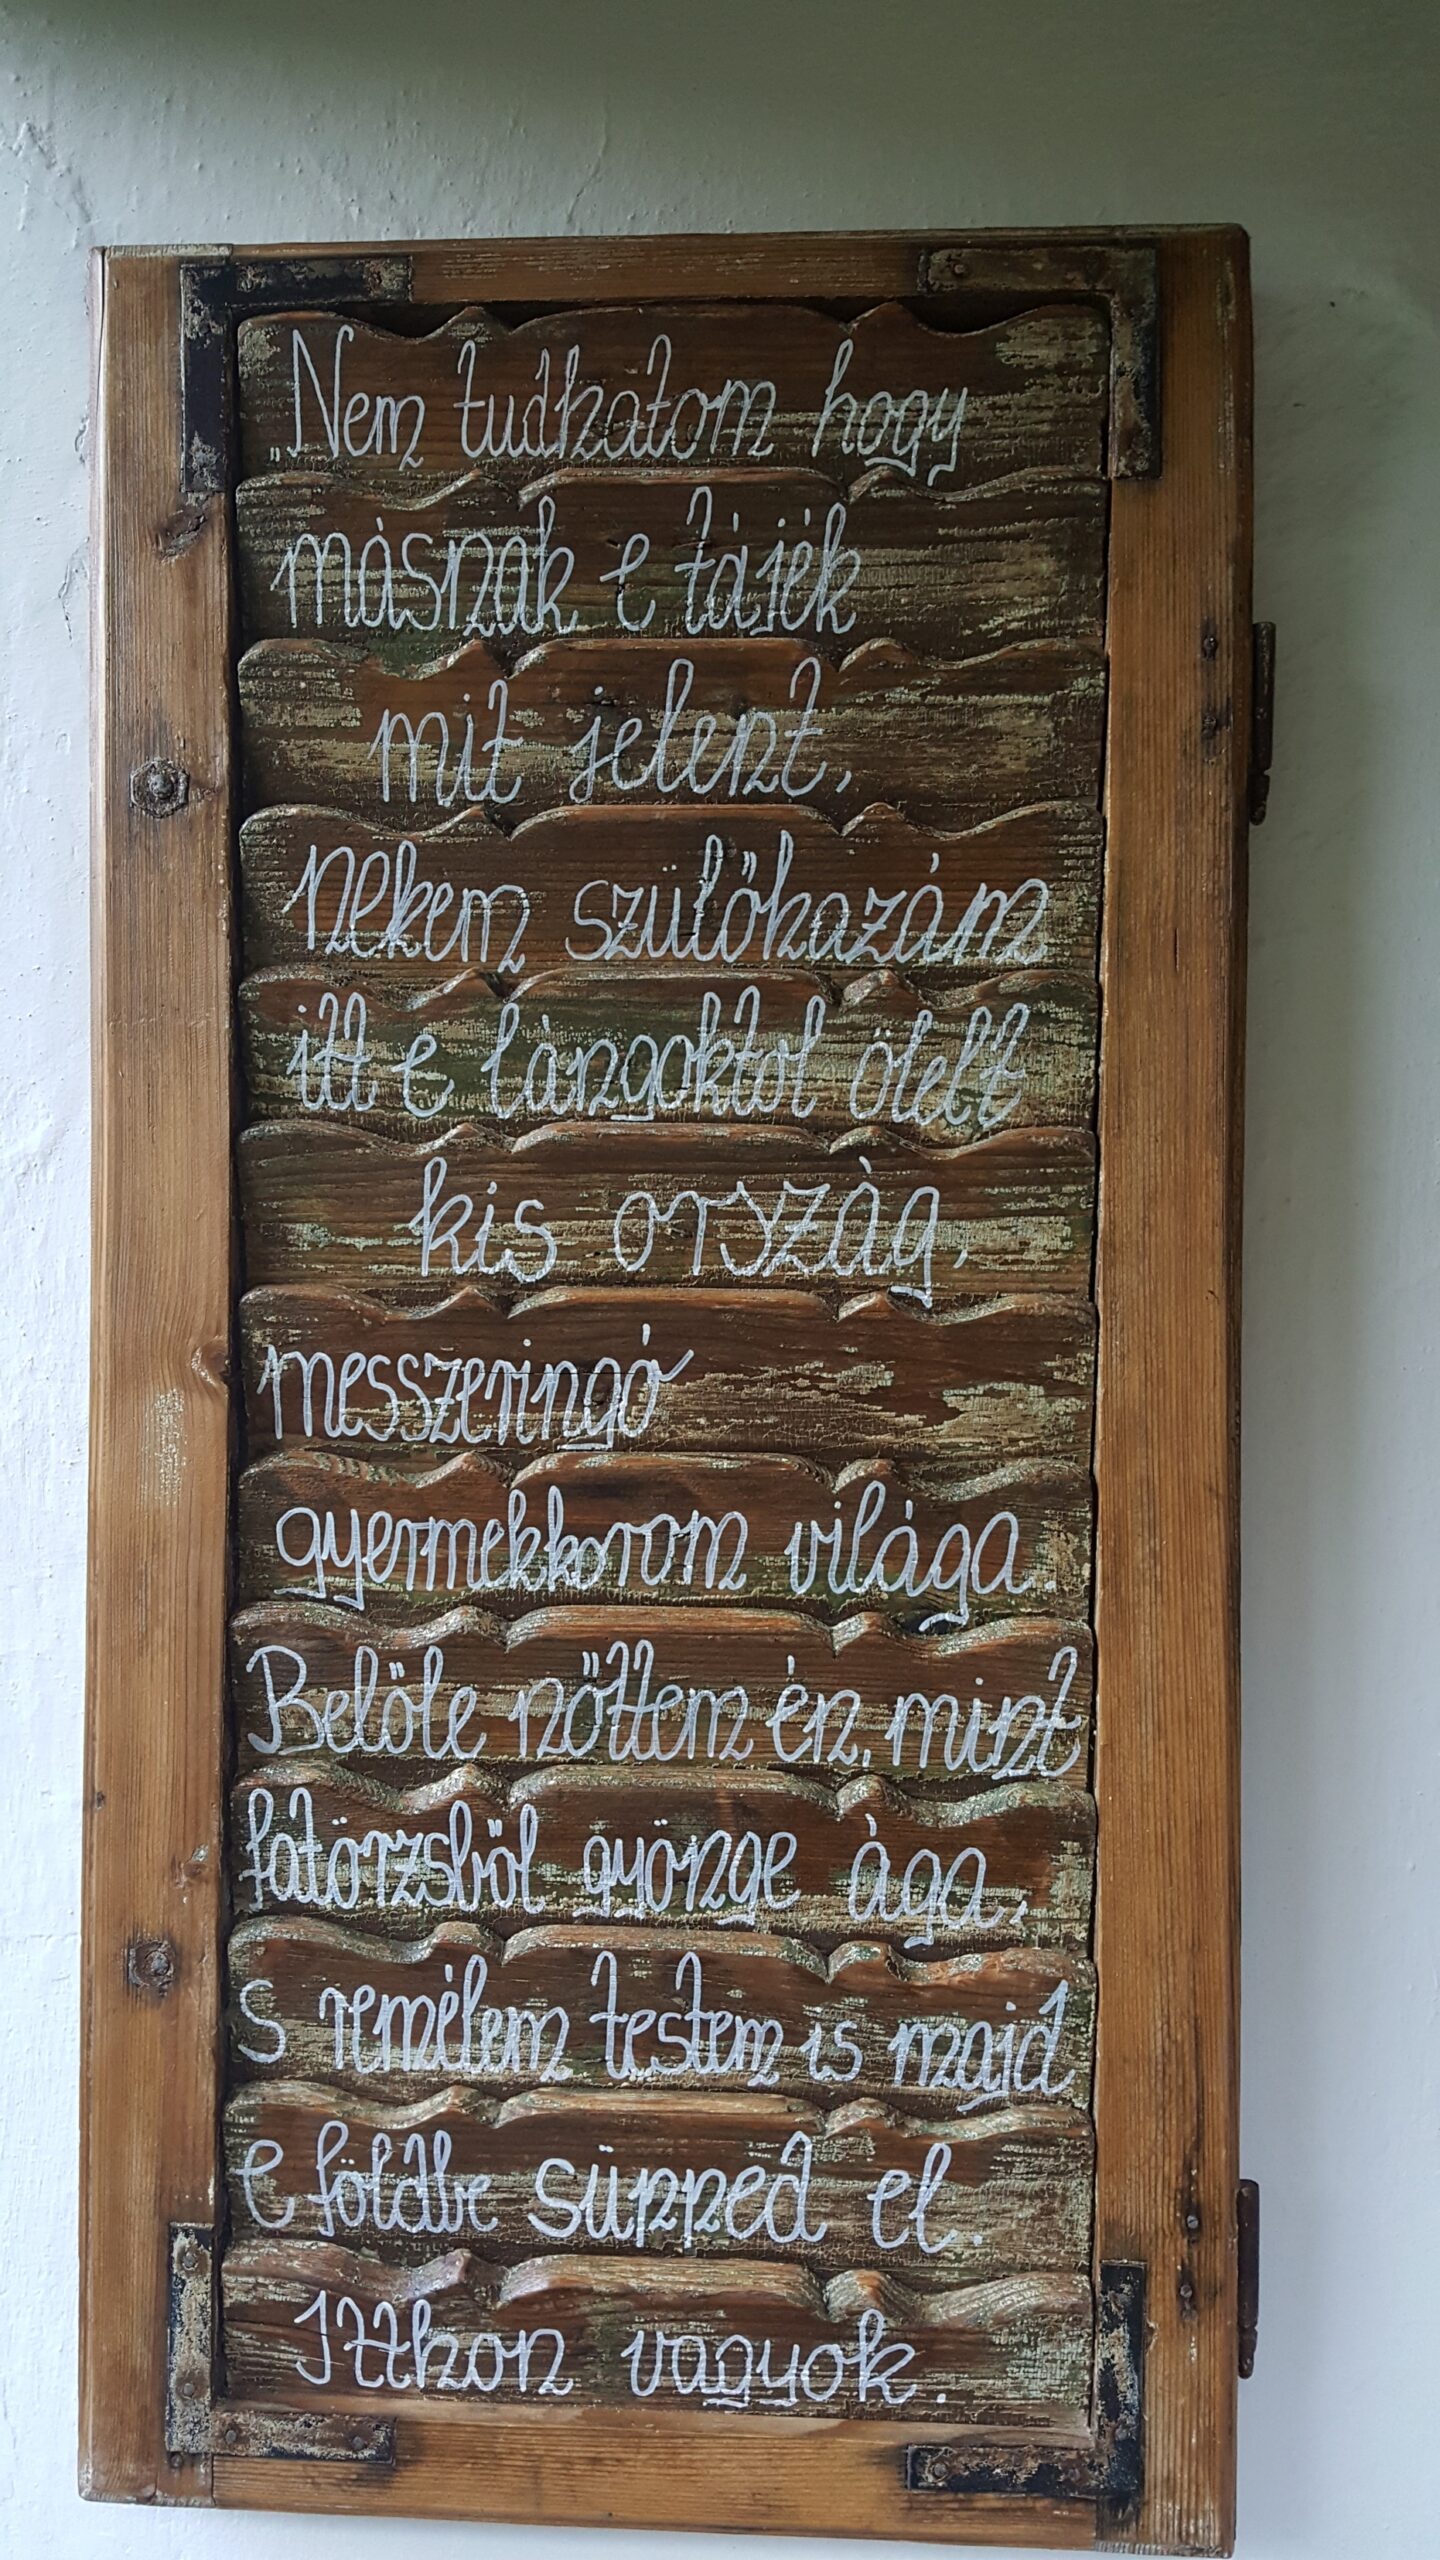 „Nem tudhatom hogy
másnak e tájék
mit jelent,
nekem szülőhazám
itt e lángoktol ölelt
kis ország,
messzeringó
gyermekkorom világa.
Belőle nőttem én, mint
fatörzsből gyönge ága,
S remélem testem is majd
e földbe süpped el.
Itthon vagyok.